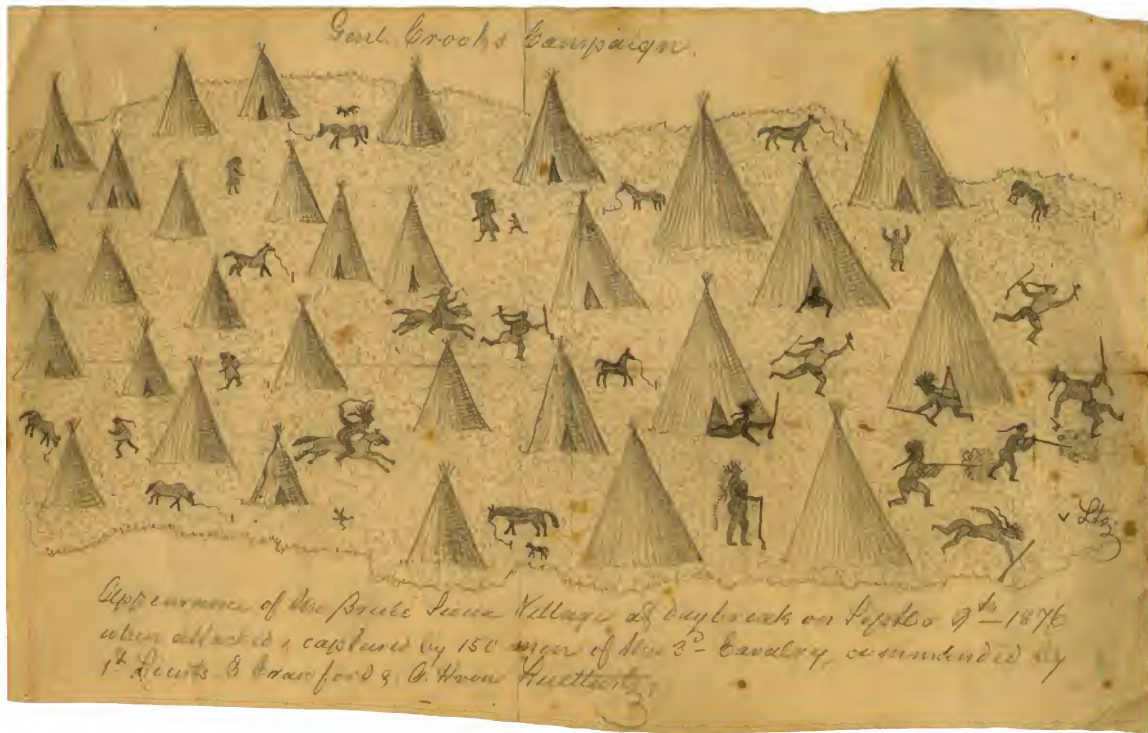 Genl. Crooks Campaign.
Appearance of the Brulé Sioux Village at daybreak on Septbr 9th 1876
when attacked & captured by 150 men of the 3d Cavalry, commanded by
1st Lieuts. E Crawford & A. H von Luettwitz